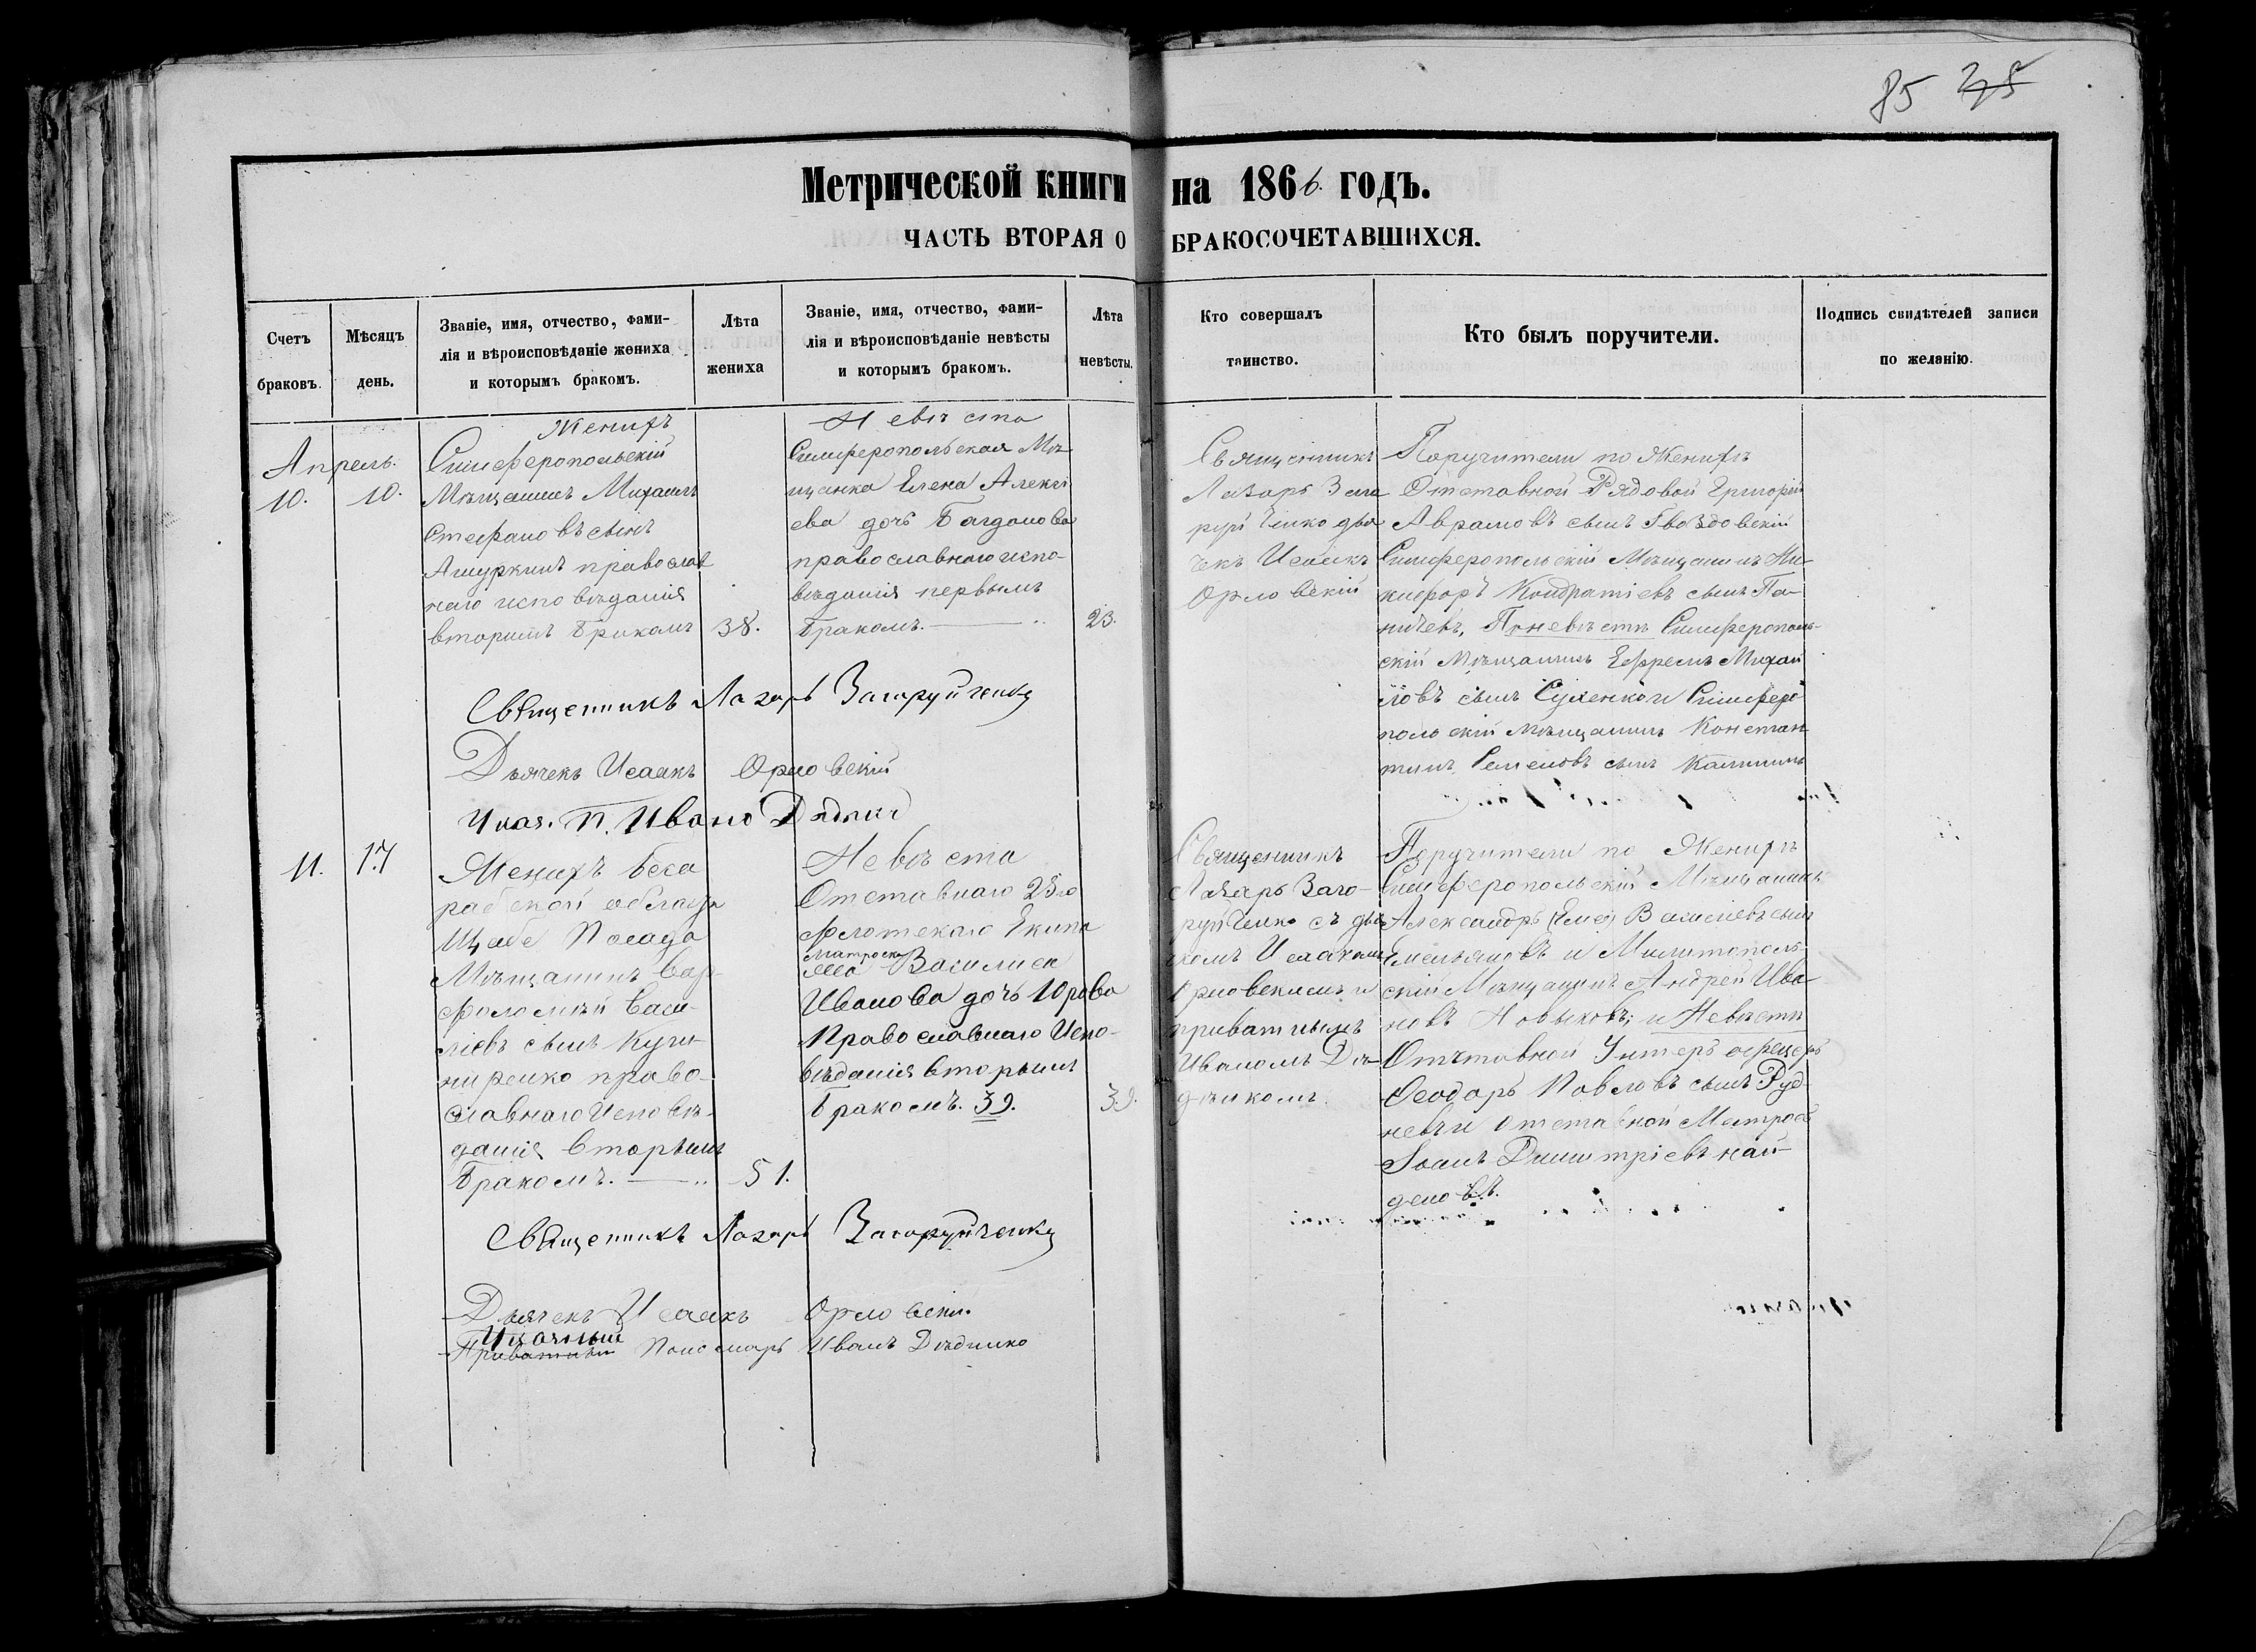 85 25
Метрической книги на 1866. годъ.
ЧАСТЬ ВТОРАЯ О БРАКОСОЧЕТАВШИХСЯ.
Счетъ браковъ.
Мѣсяцъ день.
Званіе, имя, отчество, фами-
лія и вѣроисповѣданіе жениха
и которымъ бракомъ.
Лѣта жениха
Званіе, имя, отчество, фами-
лія и вѣроисповѣданіе невѣсты
и которымъ бракомъ.
Лѣта невѣсты.
Кто совершалъ
таинство.
Кто былъ поручители.
Подпись свидѣтелей записи
по желанію.
Апрель.
10. 10.
Женихъ
Симферопольскій
Мѣщанинъ Михаилъ
Стефановъ сынъ
Ашуркинъ православ
наго исповѣданія
вторимъ бракомъ 38.
Невѣста
Симферопольская Мѣ
щанка Елена Алексѣ
ева дочь Багданова
православнаго испо-
вѣданія первымъ
бракомъ. 23.
Священникъ
Лазарь Заго
руйченко дья
чекъ Исаакъ
Орловскій
Поручители по Женихѣ
Отставной Рядовой Григорій
Аврамовъ сынъ Гвоздовскій
Симферопольскій Мѣщанинъ Ни-
кифоръ Кондратіевъ сынъ Па-
ничевъ, По невѣстѣ Симферополь-
скій Мѣщанинъ Ефремъ Михаи
ловъ сынъ Суленко и Симферо
польскій мѣщанинъ Констан
тинъ Семеновъ сынъ Калининъ
Священникъ Лазарь Загоруйченко
Дьячекъ Исаакъ Орловскій
Указ. П. Иванъ
11. 17
Женихъ Беса
рабской области
Посада
Мѣщанинъ Вар-
фоломѣй Васи-
ліевъ сынъ Кучи-
ниренко право-
славнаго Исповѣ-
данія вторымъ
бракомъ. 51.
Невѣста
Отставнаго 23го
флотскаго Екипа
матроска
Василиса
Иванова дочь Юрова
Православнаго Испо-
вѣданія вторымъ
бракомъ. 39. 39.
Священникъ
Лазарь Заго-
руйченко съ дья
чкомъ Исаакомъ
Орловскимъ и
приватнымъ
Иваномъ Дѣ-
Поручители по Женихѣ
Симферопольскій Мѣщанинъ
Александръ Василіевъ сынъ
Емельяновъ и Милитополь-
скій Мѣщанинъ Андрей Ива-
новъ Новиковъ; и Невѣстѣ
Отставной Унтеръ офицеръ
Феодоръ Павловъ сынъ Руд-
невъ и отставной Матросъ
Іоанъ Димитріевъ най-
деновъ.
Священникъ Лазарь Загоруйченко
Дьячекъ Исаакъ Орловскій.
Указный
Приватный Пономарь Иванъ Дѣдченко